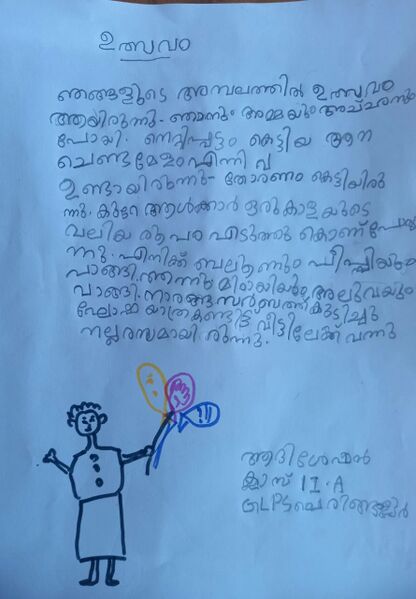 ഉത്സവം
ഞങ്ങളുടെ അമ്പലത്തിൽ ഉത്സവം
ആയിരുന്നു. ഞാനും അമ്മയും അച്ഛനും
പോയി. നെറ്റിപ്പട്ടം കെട്ടിയ ആന
ചെണ്ടമേളം എന്നിവ
ഉണ്ടായിരുന്നു. തോരണം കെട്ടിയിരു
ന്നു. കുറേ ആൾക്കാർ ഒരു കാളയുടെ
വലിയ രൂപം എടുത്തു കൊണ്ട് പോരു
ന്നു. എനിക്ക് ബലൂണും പീപ്പിയും
വാങ്ങി. തന്നു മിഠായിയും, അലുവയും
വാങ്ങി. നാരങ്ങ സർബത്ത് കുടിച്ചു
ഘോഷ യാത്ര കണ്ടിട്ട് വീട്ടി ലേക്ക് വന്നു
നല്ല രസമായി രുന്നു.
ആദിശേഷൻ
ക്ലാസ് II. A
GLPS